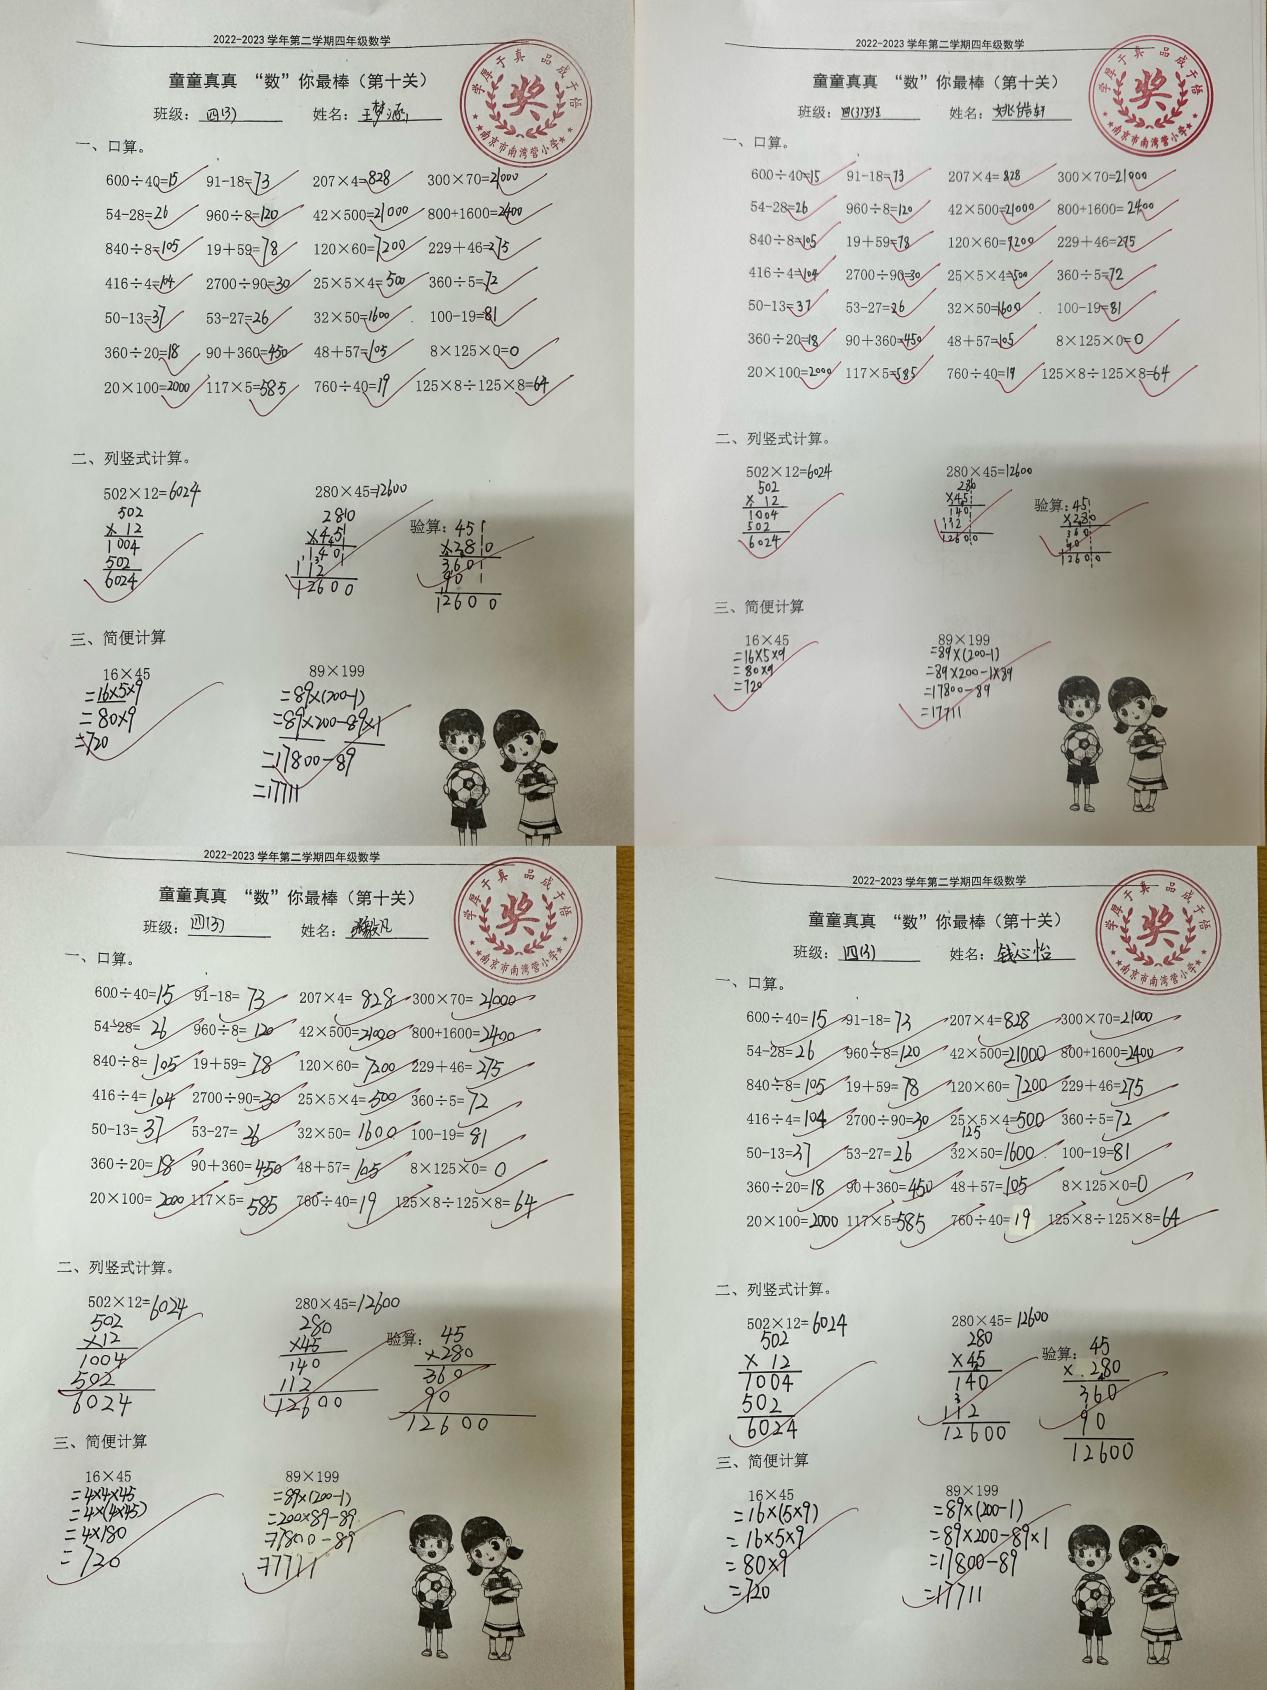 2022-2023 学年第二学期四年级数学
童童真真 “数”你最棒（第十关）
班级：四(3) 姓名：王梦涵
学厚于真 品成于悟
奖
南京市南湾营小学
一、口算。
600÷40=15 91-18=73 207×4=828 300×70=21000
54-28=26 960÷8=120 42×500=21000 800+1600=2400
840÷8=105 19+59=78 120×60=7200 229+46=275
416÷4=104 2700÷90=30 25×5×4=500 360÷5=72
50-13=37 53-27=26 32×50=1600 100-19=81
360÷20=18 90+360=450 48+57=105 8×125×0=0
20×100=2000 117×5=585 760÷40=19 125×8÷125×8=64
二、列竖式计算。
502×12=6024 280×45=12600
502
× 12
1004
502
6024
280
×45
140
112
12600
验算：45
×280
360
90
12600
三、简便计算
16×45
=16×5×9
=80×9
=720
89×199
=89×(200-1)
=89×200-89×1
=17800-89
=17711
2022-2023 学年第二学期四年级数学
童童真真 “数”你最棒（第十关）
班级： 姓名：姚皓轩
学厚于真 品成于悟
奖
南京市南湾营小学
一、口算。
600÷40=15 91-18=73 207×4=828 300×70=21000
54-28=26 960÷8=120 42×500=21000 800+1600=2400
840÷8=105 19+59=78 120×60=7200 229+46=275
416÷4=104 2700÷90=30 25×5×4=500 360÷5=72
50-13=37 53-27=26 32×50=1600 100-19=81
360÷20=18 90+360=450 48+57=105 8×125×0=0
20×100=2000 117×5=585 760÷40=19 125×8÷125×8=64
二、列竖式计算。
502×12=6024 280×45=12600
502
× 12
1004
502
6024
280
×45
140
112
12600
验算：45
×280
360
90
12600
三、简便计算
16×45
=16×5×9
=80×9
=720
89×199
=89×(200-1)
=89×200-1×89
=17800-89
=17711
2022-2023 学年第二学期四年级数学
童童真真 “数”你最棒（第十关）
班级：四(3) 姓名：
学厚于真 品成于悟
奖
南京市南湾营小学
一、口算。
600÷40=15 91-18=73 207×4=828 300×70=21000
54-28=26 960÷8=120 42×500=21000 800+1600=2400
840÷8=105 19+59=78 120×60=7200 229+46=275
416÷4=104 2700÷90=30 25×5×4=500 360÷5=72
50-13=37 53-27=26 32×50=1600 100-19=81
360÷20=18 90+360=450 48+57=105 8×125×0=0
20×100=2000 117×5=585 760÷40=19 125×8÷125×8=64
二、列竖式计算。
502×12=6024 280×45=12600
502
×12
1004
502
6024
280
×45
140
112
12600
验算：45
×280
360
90
12600
三、简便计算
16×45
=4×4×45
=4×(4×45)
=4×180
=720
89×199
=89×(200-1)
=200×89-89
=17800-89
=17711
2022-2023 学年第二学期四年级数学
童童真真 “数”你最棒（第十关）
班级：四(3) 姓名：钱心怡
学厚于真 品成于悟
奖
南京市南湾营小学
一、口算。
600÷40=15 91-18=73 207×4=828 300×70=21000
54-28=26 960÷8=120 42×500=21000 800+1600=2400
840÷8=105 19+59=78 120×60=7200 229+46=275
416÷4=104 2700÷90=30 25×5×4=500 360÷5=72
125
50-13=37 53-27=26 32×50=1600 100-19=81
360÷20=18 90+360=450 48+57=105 8×125×0=0
20×100=2000 117×5=585 760÷40=19 125×8÷125×8=64
二、列竖式计算。
502×12=6024 280×45=12600
502
× 12
1004
502
6024
280
×45
140
112
12600
验算：45
×280
360
90
12600
三、简便计算
16×45
=16×(5×9)
=16×5×9
=80×9
=720
89×199
=89×(200-1)
=89×200-89×1
=17800-89
=17711